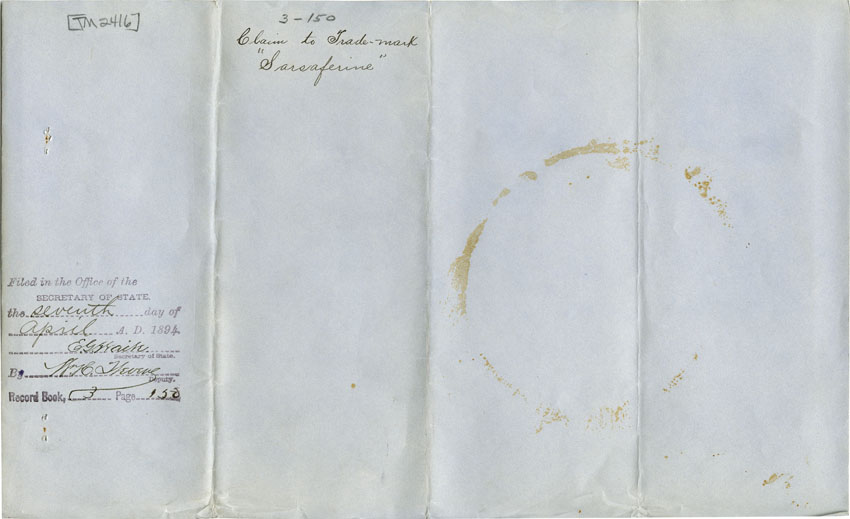 [TM 2416]
3-150
Claim to Trade-mark
"Sarsaferine"
Filed in the Office of the
SECRETARY OF STATE.
the seventh day of
April A. D. 1894.
E G Waite
Secretary of State.
By W. H.
Deputy.
Record Book, 3 Page 150